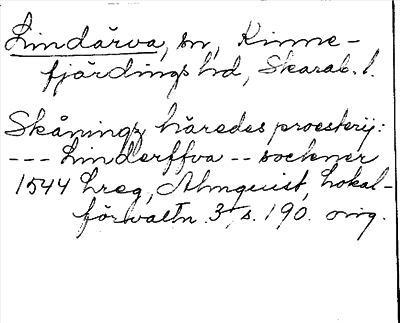 Lindärva, sn, Kinne-
fjärdings hd, Skarab. l.
Skånings häredes proesterij:
--- Linderffva -- sockner
1544 hreg, Almquist, Lokal-
förvaltn. 3, s. 190. orig.